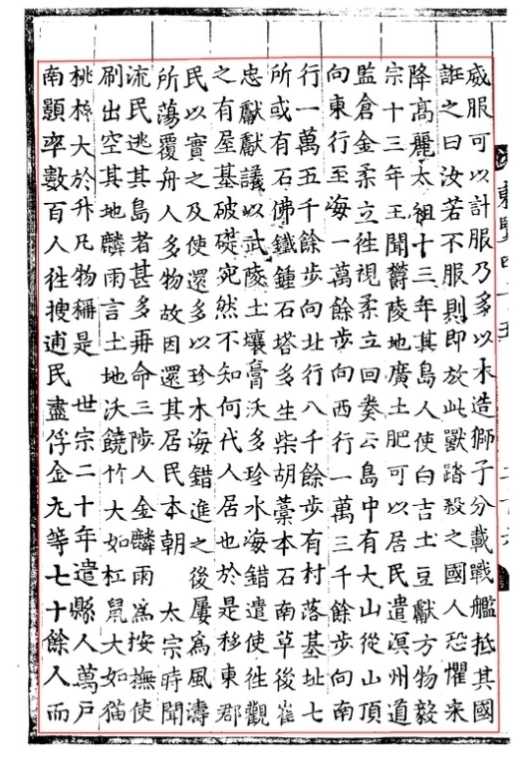 威服可以計服乃多以木造獅子分載戰艦抵其國
誑之曰汝若不服則即放此獸踏殺之國人恐懼来
降高麗太祖十三年其島人使白吉土豆獻方物毅
宗十三年王聞欝陵地廣土肥可以居民遣溟州道
監倉金柔立徃視柔立回奏云島中有大山從山頂
向東行至海一萬餘步向西行一萬三千餘步向南
行一萬五千餘步向北行八千餘步有村落基址七
所或有石佛鐵鍾石塔多生柴胡藁本石南草後崔
忠獻獻議以武陵土壤膏沃多珍水海錯遣使徃觀
之有屋基破礎宛然不知何代人居也於是移東郡
民以實之及使還多以珍木海錯進之後屢為風濤
所蕩覆舟人多物故因還其居民本朝 太宗時聞
流民逃其島者甚多再命三陟人金麟雨為按撫使
刷出空其地麟雨言土地沃饒竹大如杠鼠大如猫
桃核大於升凡物稱是 世宗二十年遣縣人萬戶
南顥率數百人徃搜逋民盡俘金丸等七十餘人而